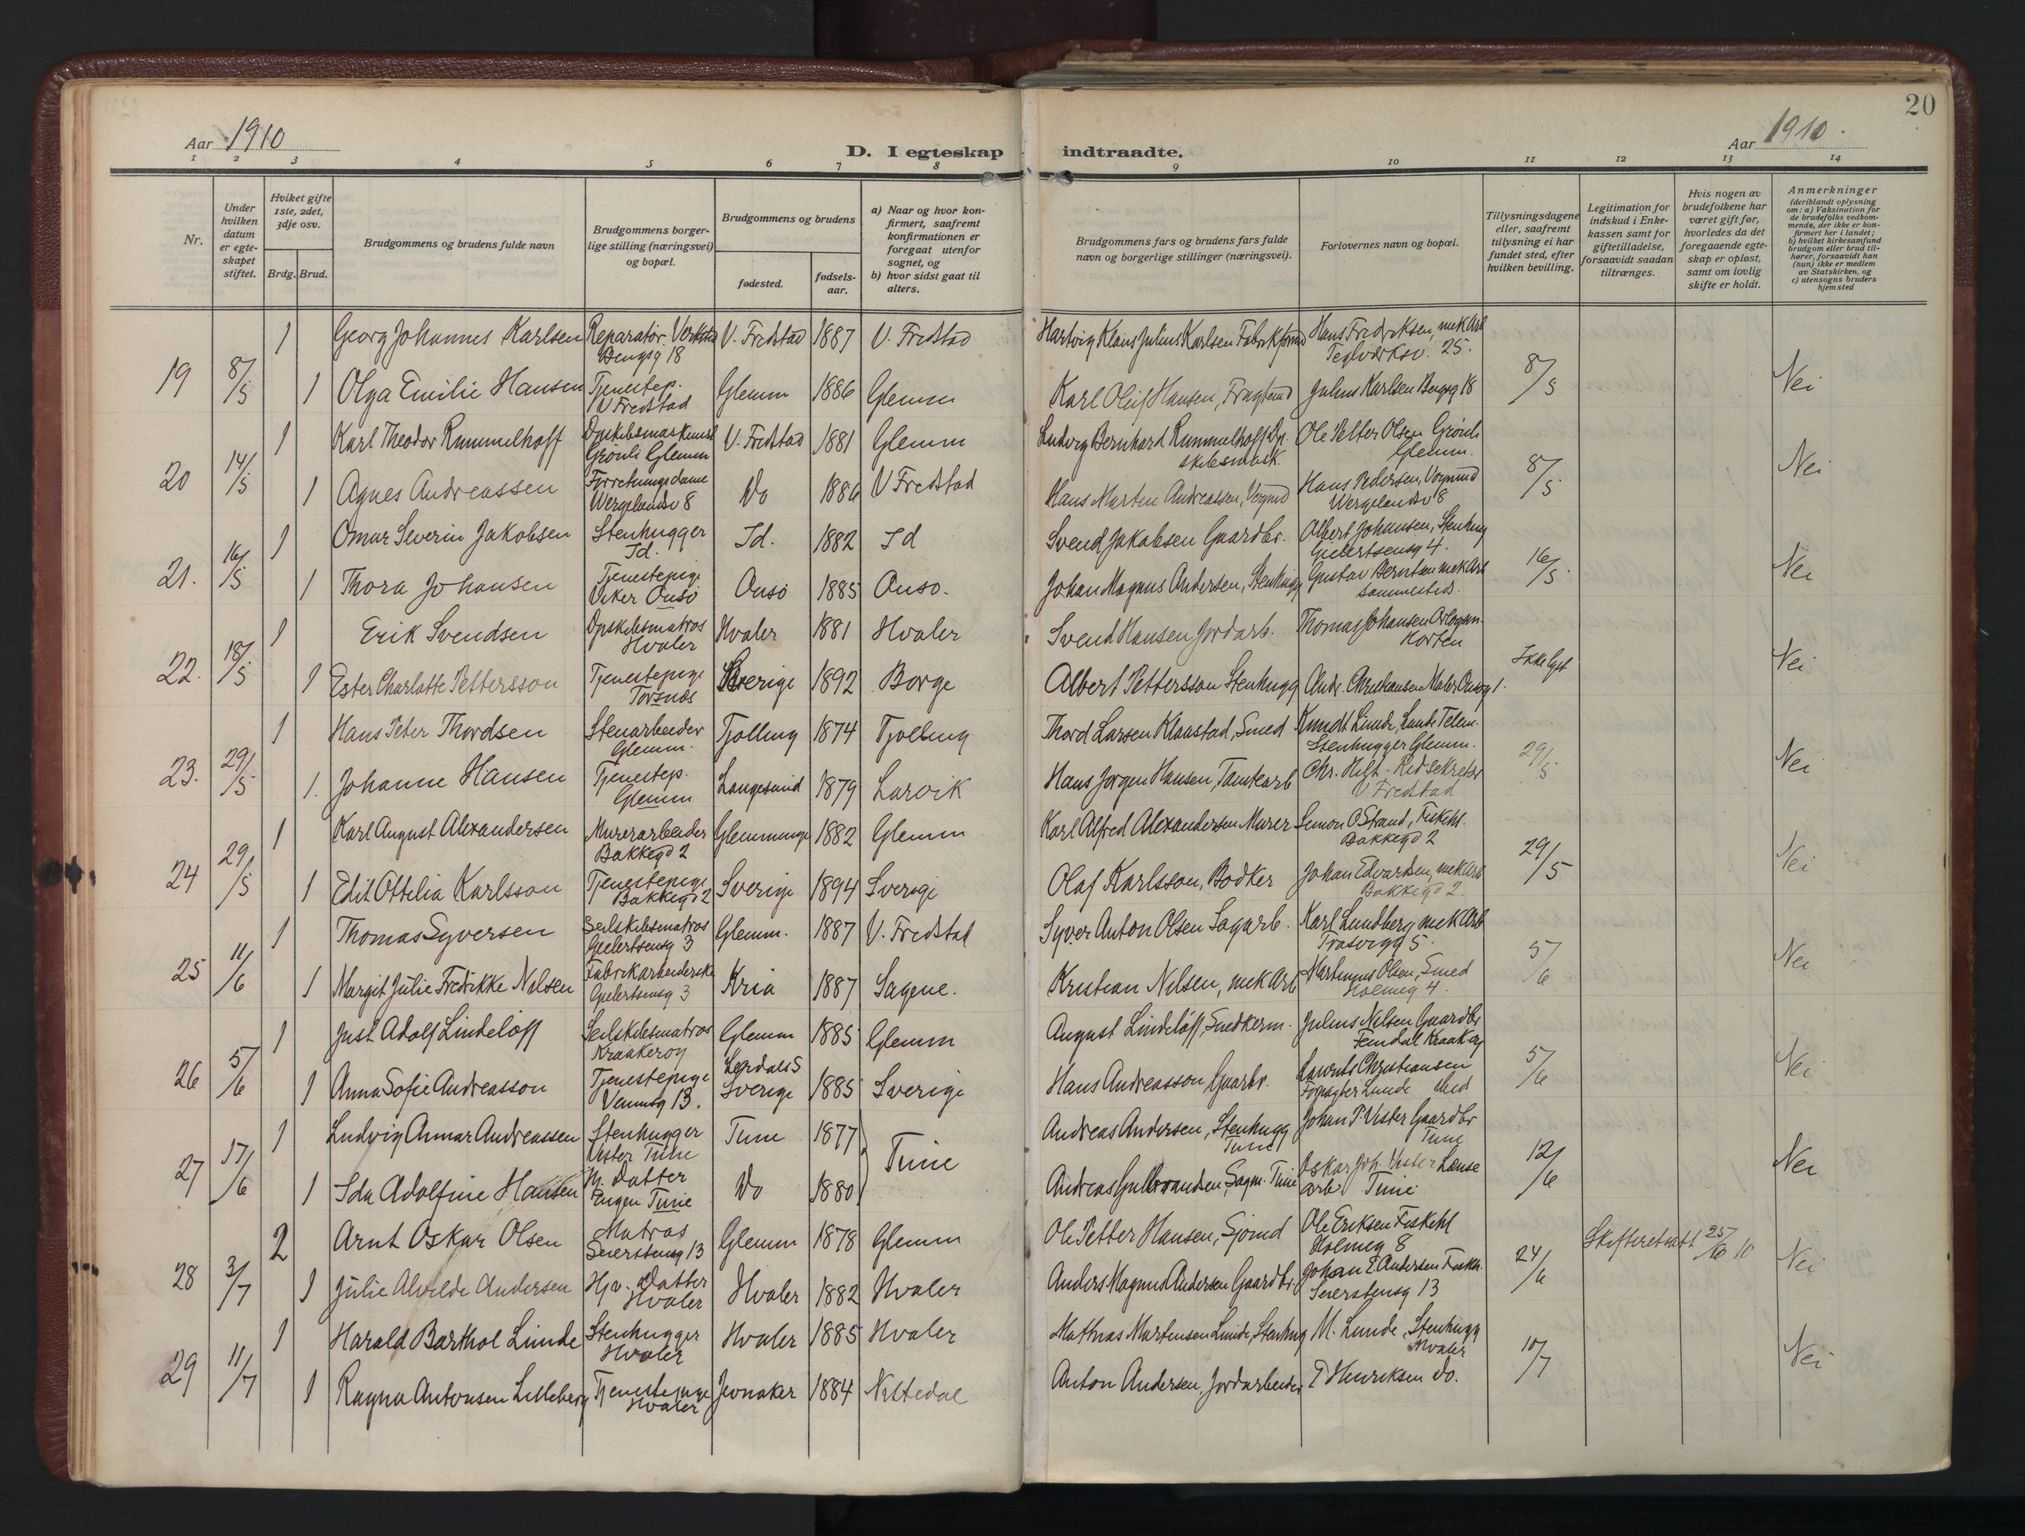 20
Aar 1910
D. I egteskap indtraadte.
Aar 1910.
1 2 3 4 5 6 7 8 9 10 11 12 13 14
Nr.
Under hvilken datum er egteskapet stiftet.
Hviket gifte 1ste, 2det, 3dje osv.
Brdg. Brud.
Brudgommens og brudens fulde navn
Brudgommens borgerlige stilling (næringsvei) og bopæl.
Brudgommens og brudens
fødested. fødselsaar.
a) Naar og hvor konfirmert, saafremt konfirmationen er foregaat utenfor sognet, og
b) hvor sidst gaat til alters.
Brudgommens fars og brudens fars fulde navn og borgerlige stillinger (næringsvei).
Forlovernes navn og bopæl.
Tillysningsdagene eller, saafremt tillysning ei har fundet sted, efter hvilken bevilling.
Legitimation for indskud i Enkekassen samt for giftetilladelse, forsaavidt saadan tiltrænges.
Hvis nogen av brudefolkene har været gift før, hvorledes da det foregaaende egteskap er opløst, samt om lovlig skifte er holdt.
Anmerkninger (deriblandt oplysning om: a) Vaksination for de brudefolks vedkommende, der ikke er konfirmert her i landet; b) hvilket kirkesamfund brudgom eller brud tilhører, forsaavidt han (hun) ikke er medlem av Statskirken, og c) utensogns bruders hjemsted
1 Georg Johannes Karlsen Reparatør. Verksted Bergsg 18 V. Fredstad 1887 V. Fredstad Hartvig Klaus Julius Karlsen Fabrikformd Hans Fredriksen, mek Arb Teglverksv. 25.
19 8/5 1 Olga Emilie Hansen Tjenestep. V Fredstad Glemm 1886 Glemm Karl Oluf Hansen, Julius Karlsen Bergsg 18 8/5 Nei
1 Karl Theodor Rummelhoff Dpskibsmaskinist Grønli Glemm V. Fredstad 1881 Glemm Ludvig Bernhard Rummelhoff Dp. skibsmask. Ole Petter Olsen Grønli Glemm.
20 14/5 1 Agnes Andreassen Forretningsdame Wergelandsv 8 Do 1886 V Fredstad Hans Martin Andreassen, Vognmd Hans Pedersen, Vognmd Wergelandsv 8 8/5 Nei
1 Omar Severin Jakobsen Stenhugger Id. Id. 1882 Id Svend Jakobsen Gaardbr. Albert Johansen, Stenhug Gielertsensg 4.
21. 16/5 1 Thora Johansen Tjenestepige Viker Onsø Onsø 1885 Onsø. Johan Magnus Andersen, Stenhugg Gustav Berntsen mek Arb sammesteds. 16/5 Nei
1 Erik Svendsen Dpskibsmatros Hvaler Hvaler 1881 Hvaler Svend Hansen Jordarb. Thomas Johansen Horten
22. 18/5 1 Ester Charlotte Pettersson Tjenestepige Torsnes Sverige 1892 Borge Albert Pettersson Stenhugg Andr. Christiansen Maler Onsøg 1. Ikke lyst Nei
1 Hans Peter Thordsen Stenarbeider Glemm. Tjølling 1874 Tjølling Thord Larsen Klaastad, Smed Knudt Lunde, Lunde Telem. Stenhugger Glemm.
23. 29/5 1. Johanne Hansen Tjenestep. Glemm Langesund 1879 Larvik Hans Jørgen Hansen, Tomtearb Chr. Holt. Red sekretær V Fredstad 29/5 Nei
1 Karl August Alexandersen Murerarbeider Bakkegd 2 Glemmenge 1882 Glemm Karl Alfred Alexandersen Murer Simon O Strand, Fiskehl. Bakkegd 2
24 29/5 1 Edit Ottelia Karlsson Tjenestepige Bakkegd 2 Sverige 1894 Sverige Olaf Karlsson, Bødker Johan Edvardsen, mek Arb Bakkegd 2. 29/5 Nei
1 Thomas Syversen Seilskibsmatros Gielertsensg 3 Glemm. 1887 V. Fredstad Syver Anton Olsen Sagarb. Karl Lundberg mek Arb Trosviggd 5.
25 11/6 1 Margit Julie Fredrikke Nilsen Fabrikarbeiderske Gielertsensg 3 Kria 1887 Sagene. Kristian Nilsen, mek Arb Martinius Olsen, Smed Holmeg 4. 5/6 Nei
1 Just Adolf Lindeløff Seilskibsmatros Kraakerøy Glemm 1885 Glemm August Lindeløff, Snedkerm. Julius Nilsen Gaardbr Femdal Kraakerøy
26 5/6 1 Anna Sofie Andreasson Tjenestepige Venusg 13. Lerdals S Sverige 1885 Sverige Hans Andreasson Gaarbr. Laurits Christiansen Lunde 5/6 Nei
1 Ludvig Anmar Andreassen Stenhugger Vister Tune Tune 1877 Tune Andreas Andersen, Stenhugg Tune Johan P. Vister Gaardbr Tune
27 17/6 1 Ida Adolfine Hansen Hj. Datter Engen Tune Do 1880 Andreas Gulbrandsen, Sagm. Tune Oskar Joh. Vister Lense arb. Tune 12/6 Nei
2 Arnt Oskar Olsen Matros Seierstensg 13 Glemm 1878 Glemm Ole Petter Hansen, Sjømd Ole Eriksen Fiskehl Holmeg 8 Skifteretsatt 25/6 10
28 3/7 1 Julie Alvilde Andersen Hjv. Datter Hvaler Hvaler 1882 Hvaler Anders Magnus Andersen Gaardbr. Johan E. Andersen Fiskh. Seierstensg 13 24/6 Nei
1 Harald Barthol Lunde Stenhugger Hvaler Hvaler 1885 Hvaler Mathias Martensen Lunde, Stenhug M. Lunde, Stenhugg Hvaler
29 11/7 1 Ragna Antonsen Lilleberg Tjenestepige Hvaler Jevnaker 1884 Nittedal Anton Andersen, Jordarbeider T Henriksen Do. 10/7 Nei